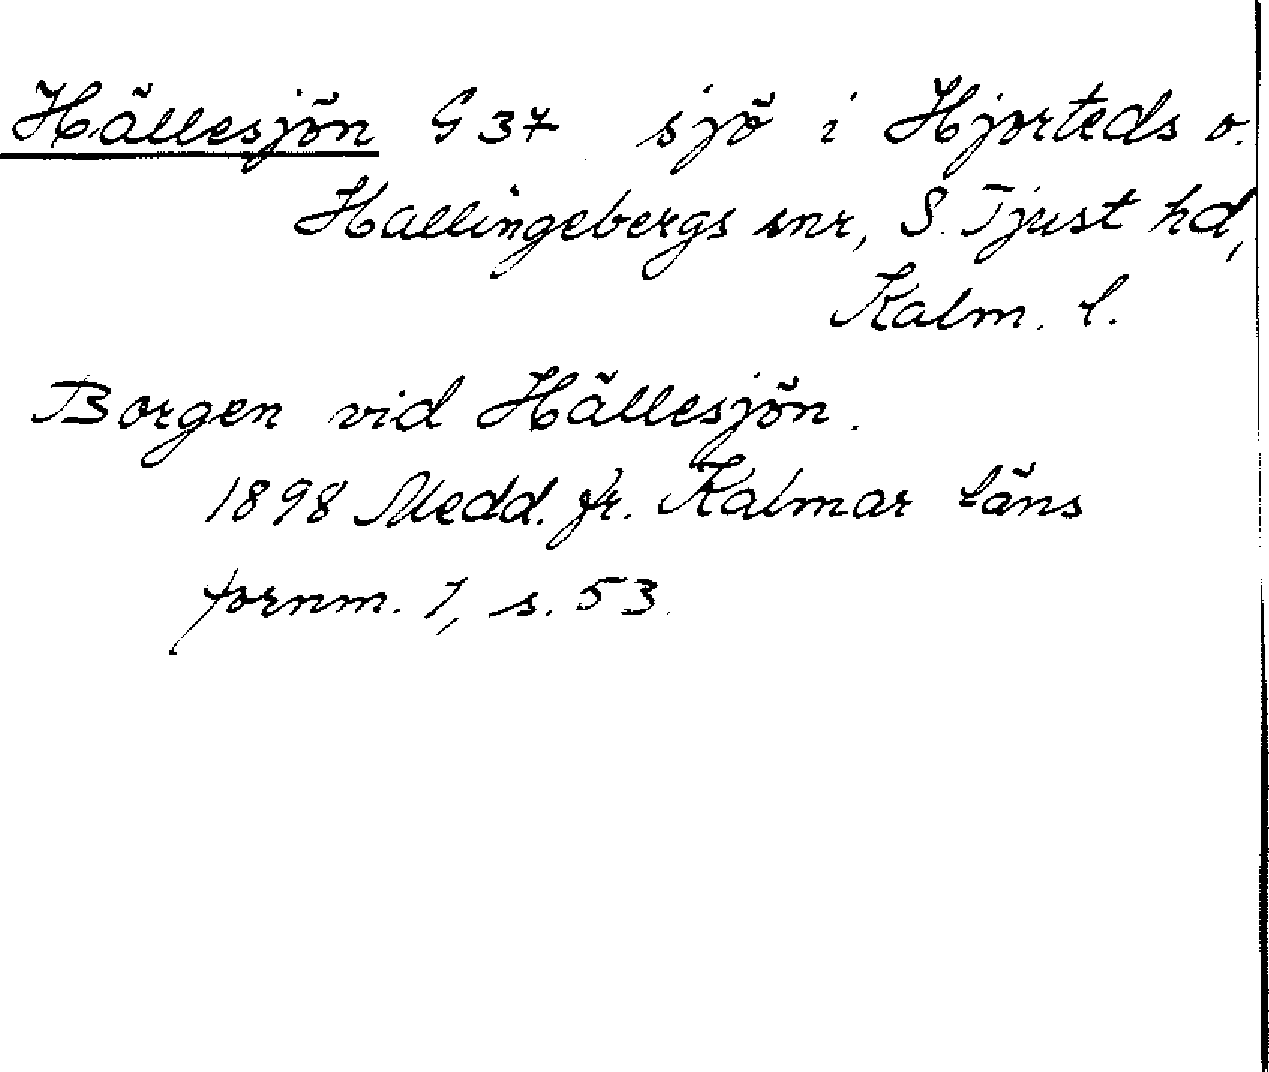 Hällesjön G 37 sjö i Hjorteds o.
Hallingebergs snr, S. Tjust hd,
Kalm. l.
Borgen vid Hällesjön.
1898 Medd. fr. Kalmar läns
fornm. 1, s. 53.